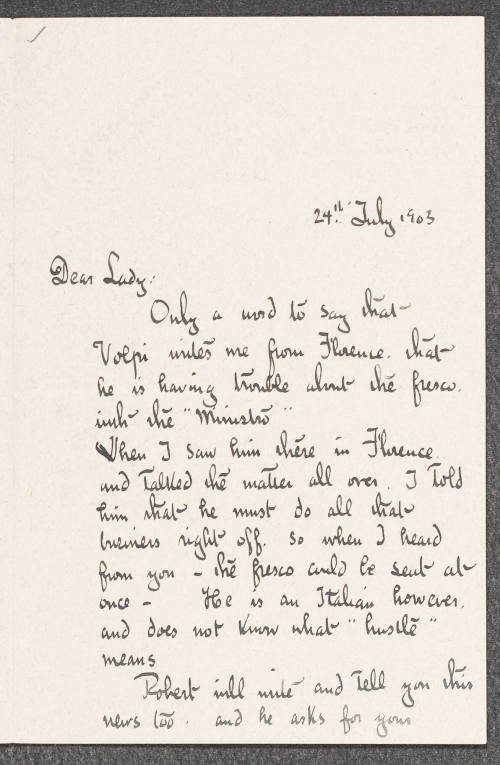 24th July 1903
Dear Lady:
Only a word to say that
Volpi writes me from Florence. that
he is having trouble about the fresco.
with the "Ministro"
When I saw him there in Florence.
and talked the matter all over. I told
him that he must do all that
business right off. so when I heard
from you - the fresco could be sent at
once - He is an Italian however.
and does not know what "hustle"
means
Robert will write and tell you this
news too. and he asks for your